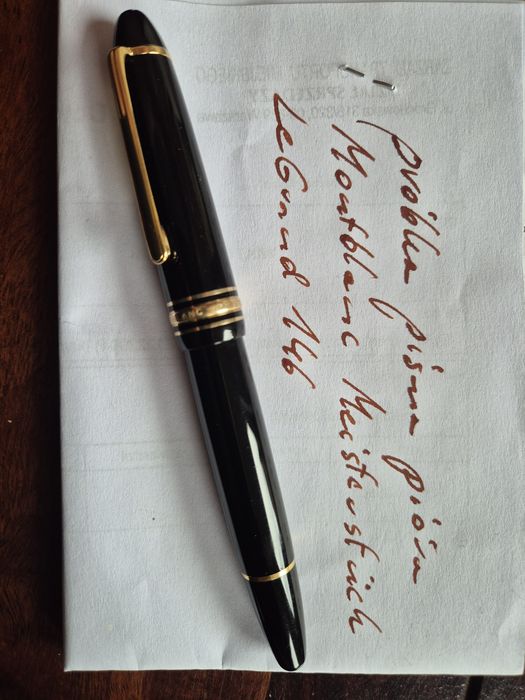 próbka pisma pióra
Montblanc Meisterstück
LeGrand 146
LANC